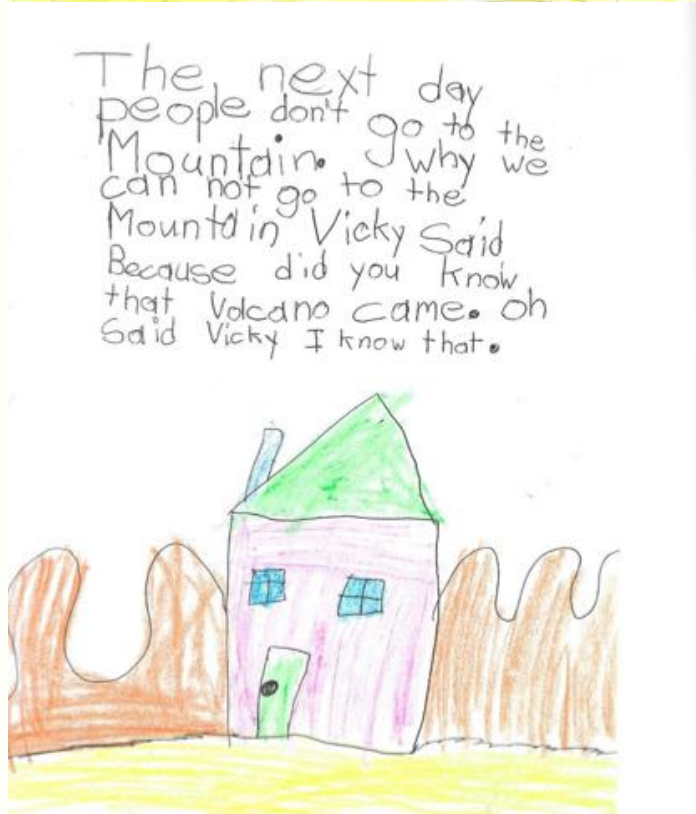 The next day
people don't go to the
Mountain. why we
can not go to the
Mountain Vicky Said
Because did you know
that Volcano came. oh
Said Vicky I know that.